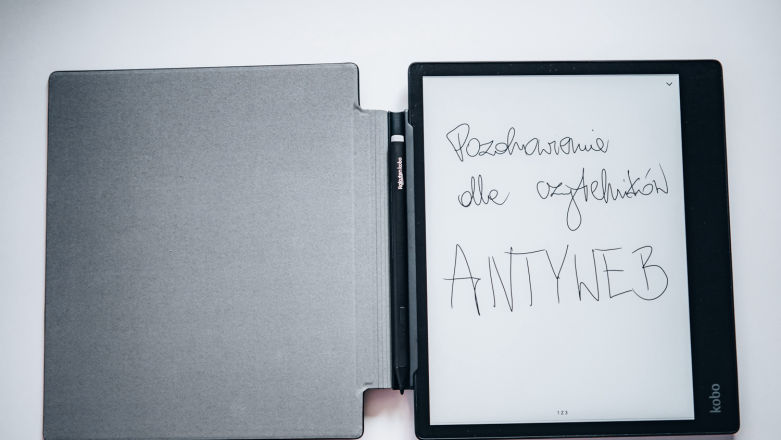 Pozdrowienia
dla czytelników
ANTYWEB
Rakuten kobo
kobo
1 2 3